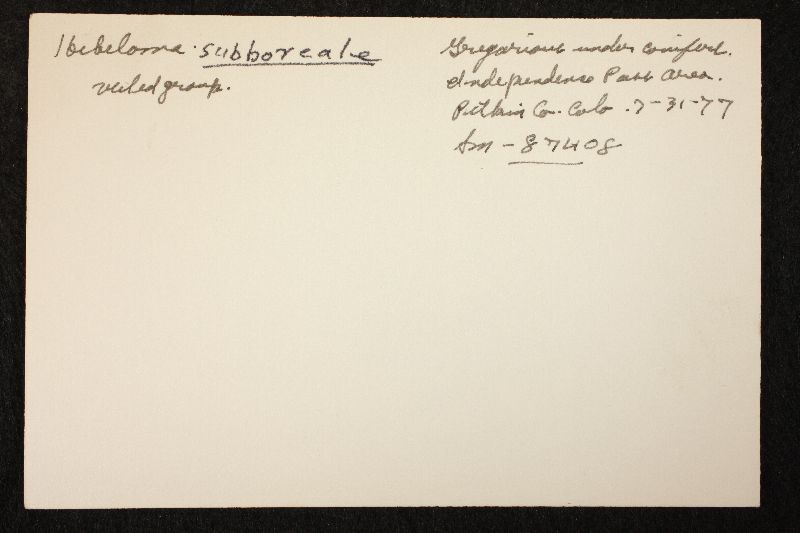 Hebeloma subboreale
veiled group.
Gregarious under conifers.
Independence Pass area.
Pitkin Co. Colo. 7-31-77
Sm - 87408